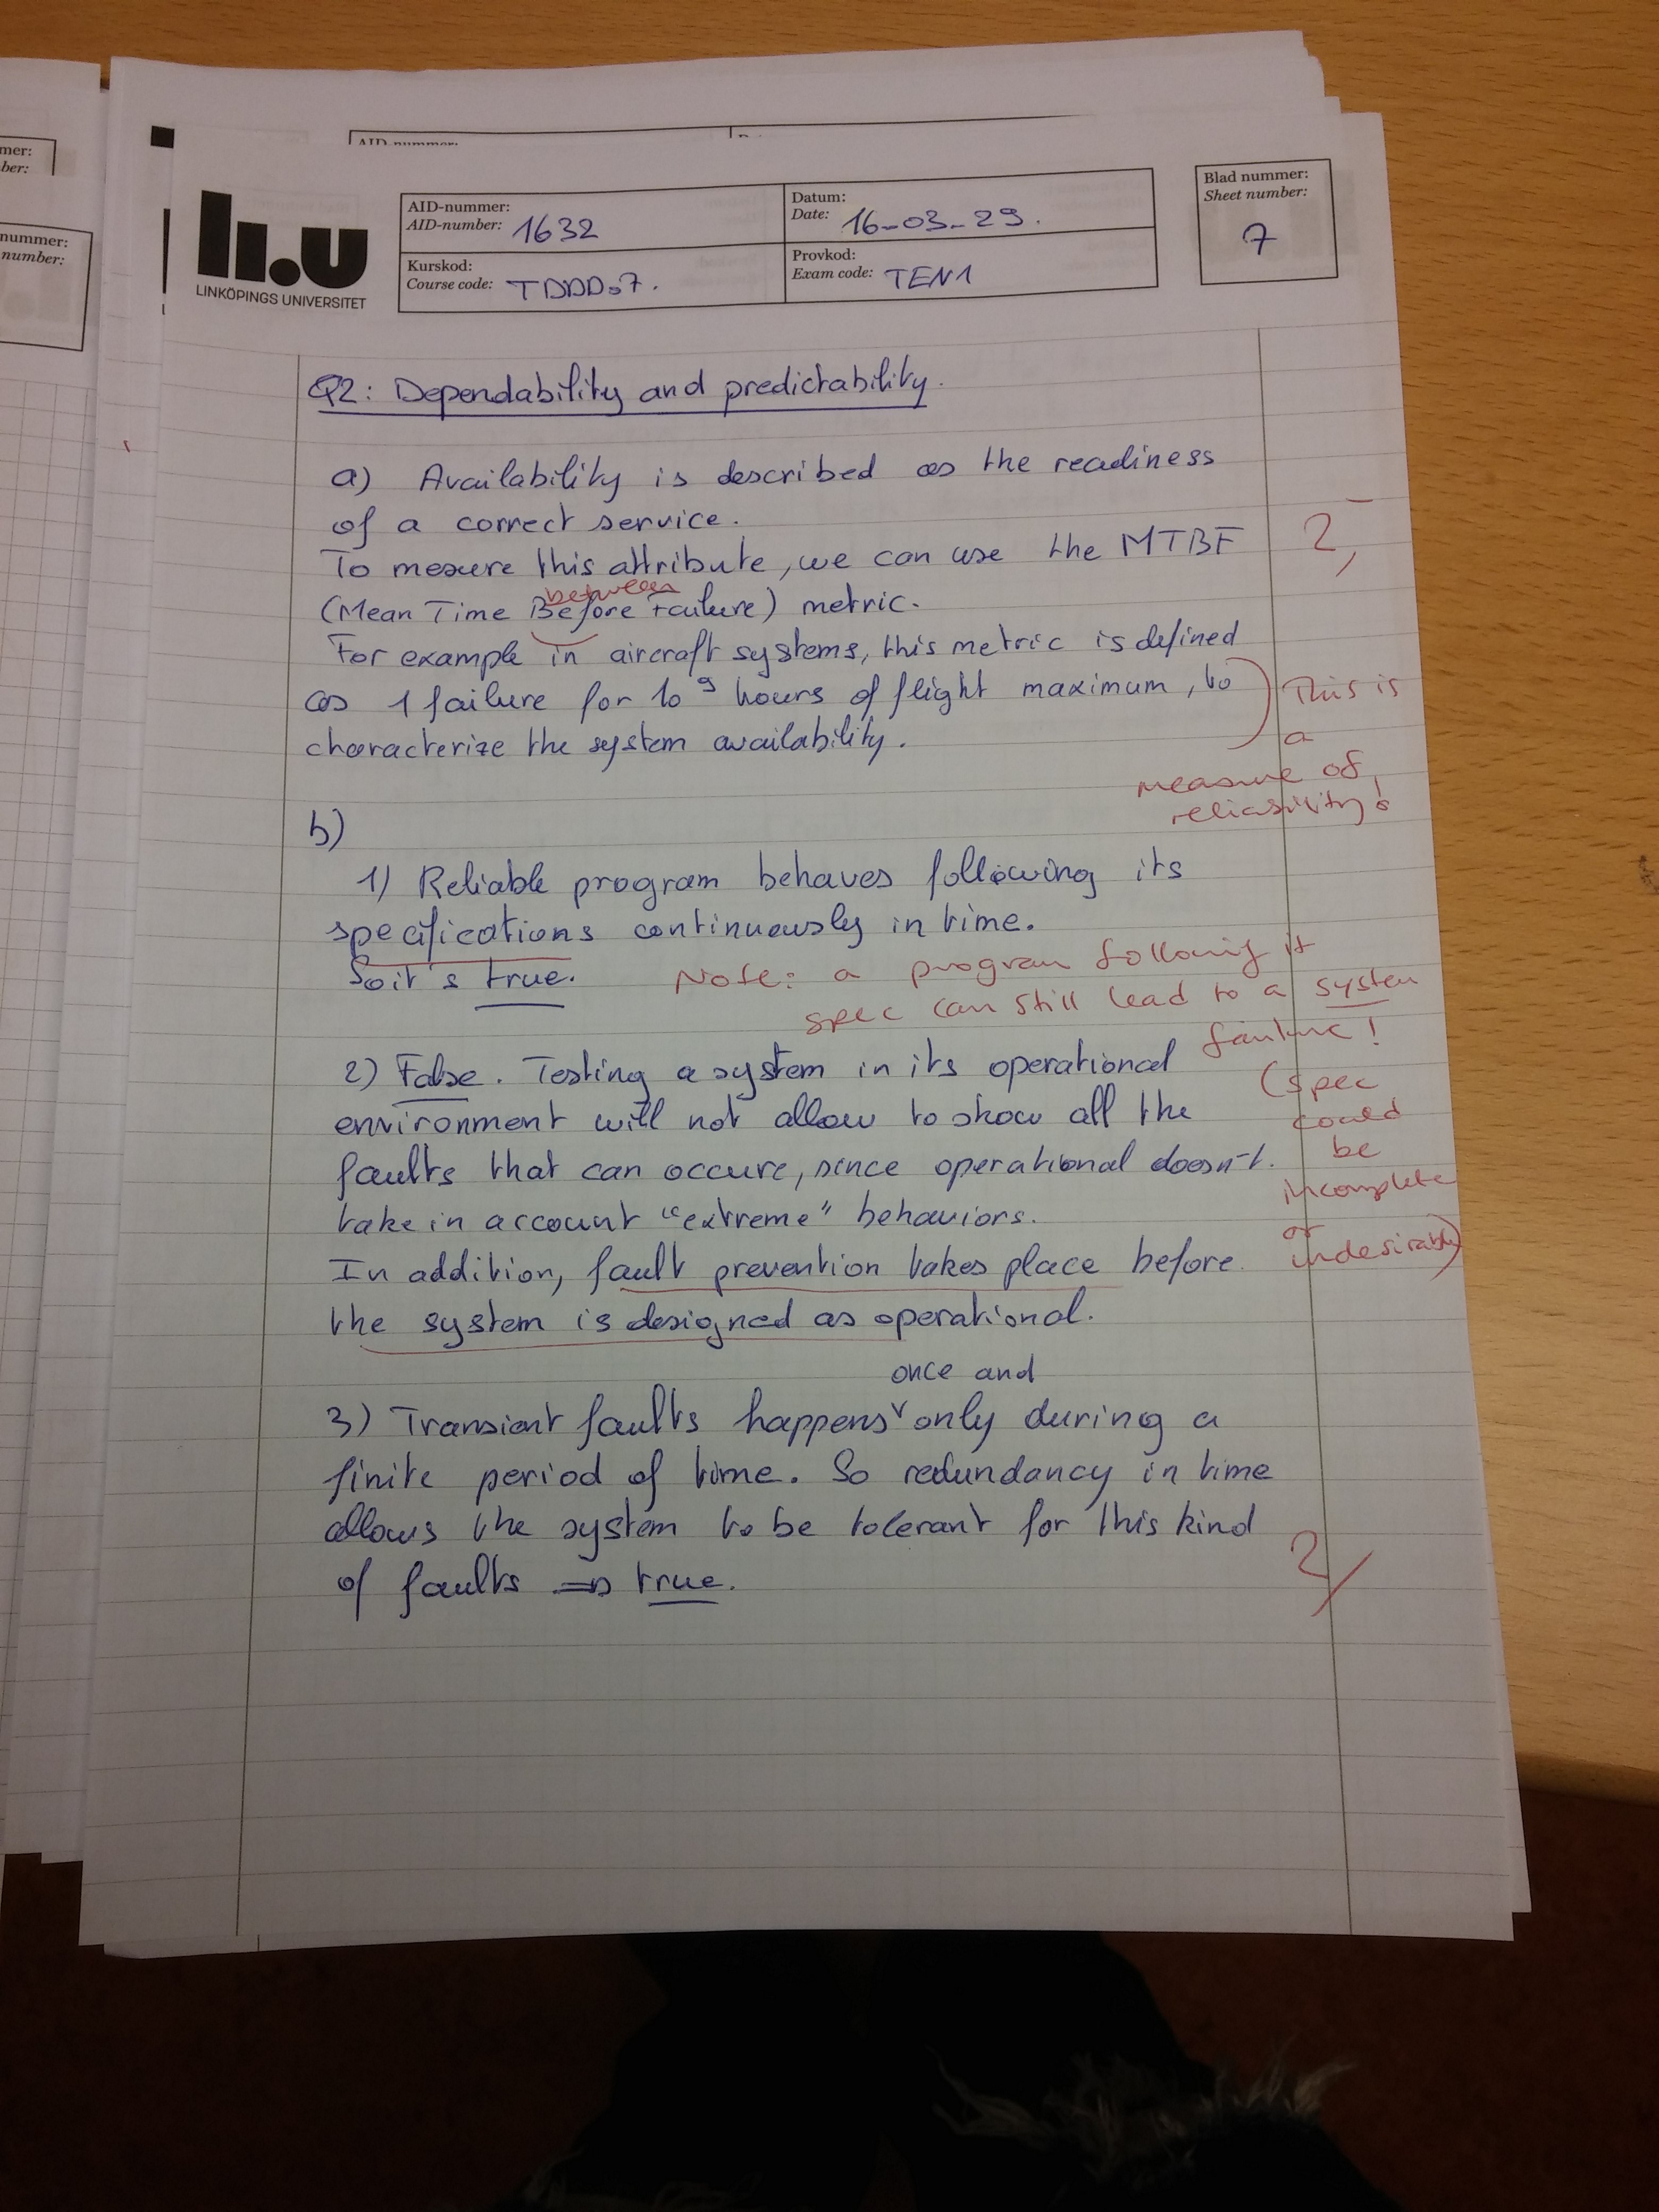 mer:
ber:
nummer:
number:
AID-nummer:
LINKÖPINGS UNIVERSITET
AID-nummer:
AID-number: 1632
Datum:
Date: 16-03-29.
Kurskod:
Course code: TDDD07.
Provkod:
Exam code: TEN1
Blad nummer:
Sheet number:
7
Q2: Dependability and predictability.
a) Availability is described as the readiness
of a correct service.
To mesure this attribute, we can use the MTBF
2,
between
(Mean Time Before Failure) metric.
For example in aircraft systems, this metric is defined
as 1 failure for 10⁹ hours of flight maximum, to
characterize the system availability.
This is
a
measure of
reliability!
b)
1) Reliable program behaves following its
specifications continuously in time.
So it's true.
Note: a program following it
spec can still lead to a system
failure!
(spec
could
be
incomplete
or
indesirable)
2) False. Testing a system in its operational
environment will not allow to show all the
faults that can occure, since operational doesn't
take in account "extreme" behaviors.
In addition, fault prevention takes place before
the system is designed as operational.
once and
3) Transient faults happens only during a
finite period of time. So redundancy in time
allows the system to be tolerant for this kind
of faults => true.
2/